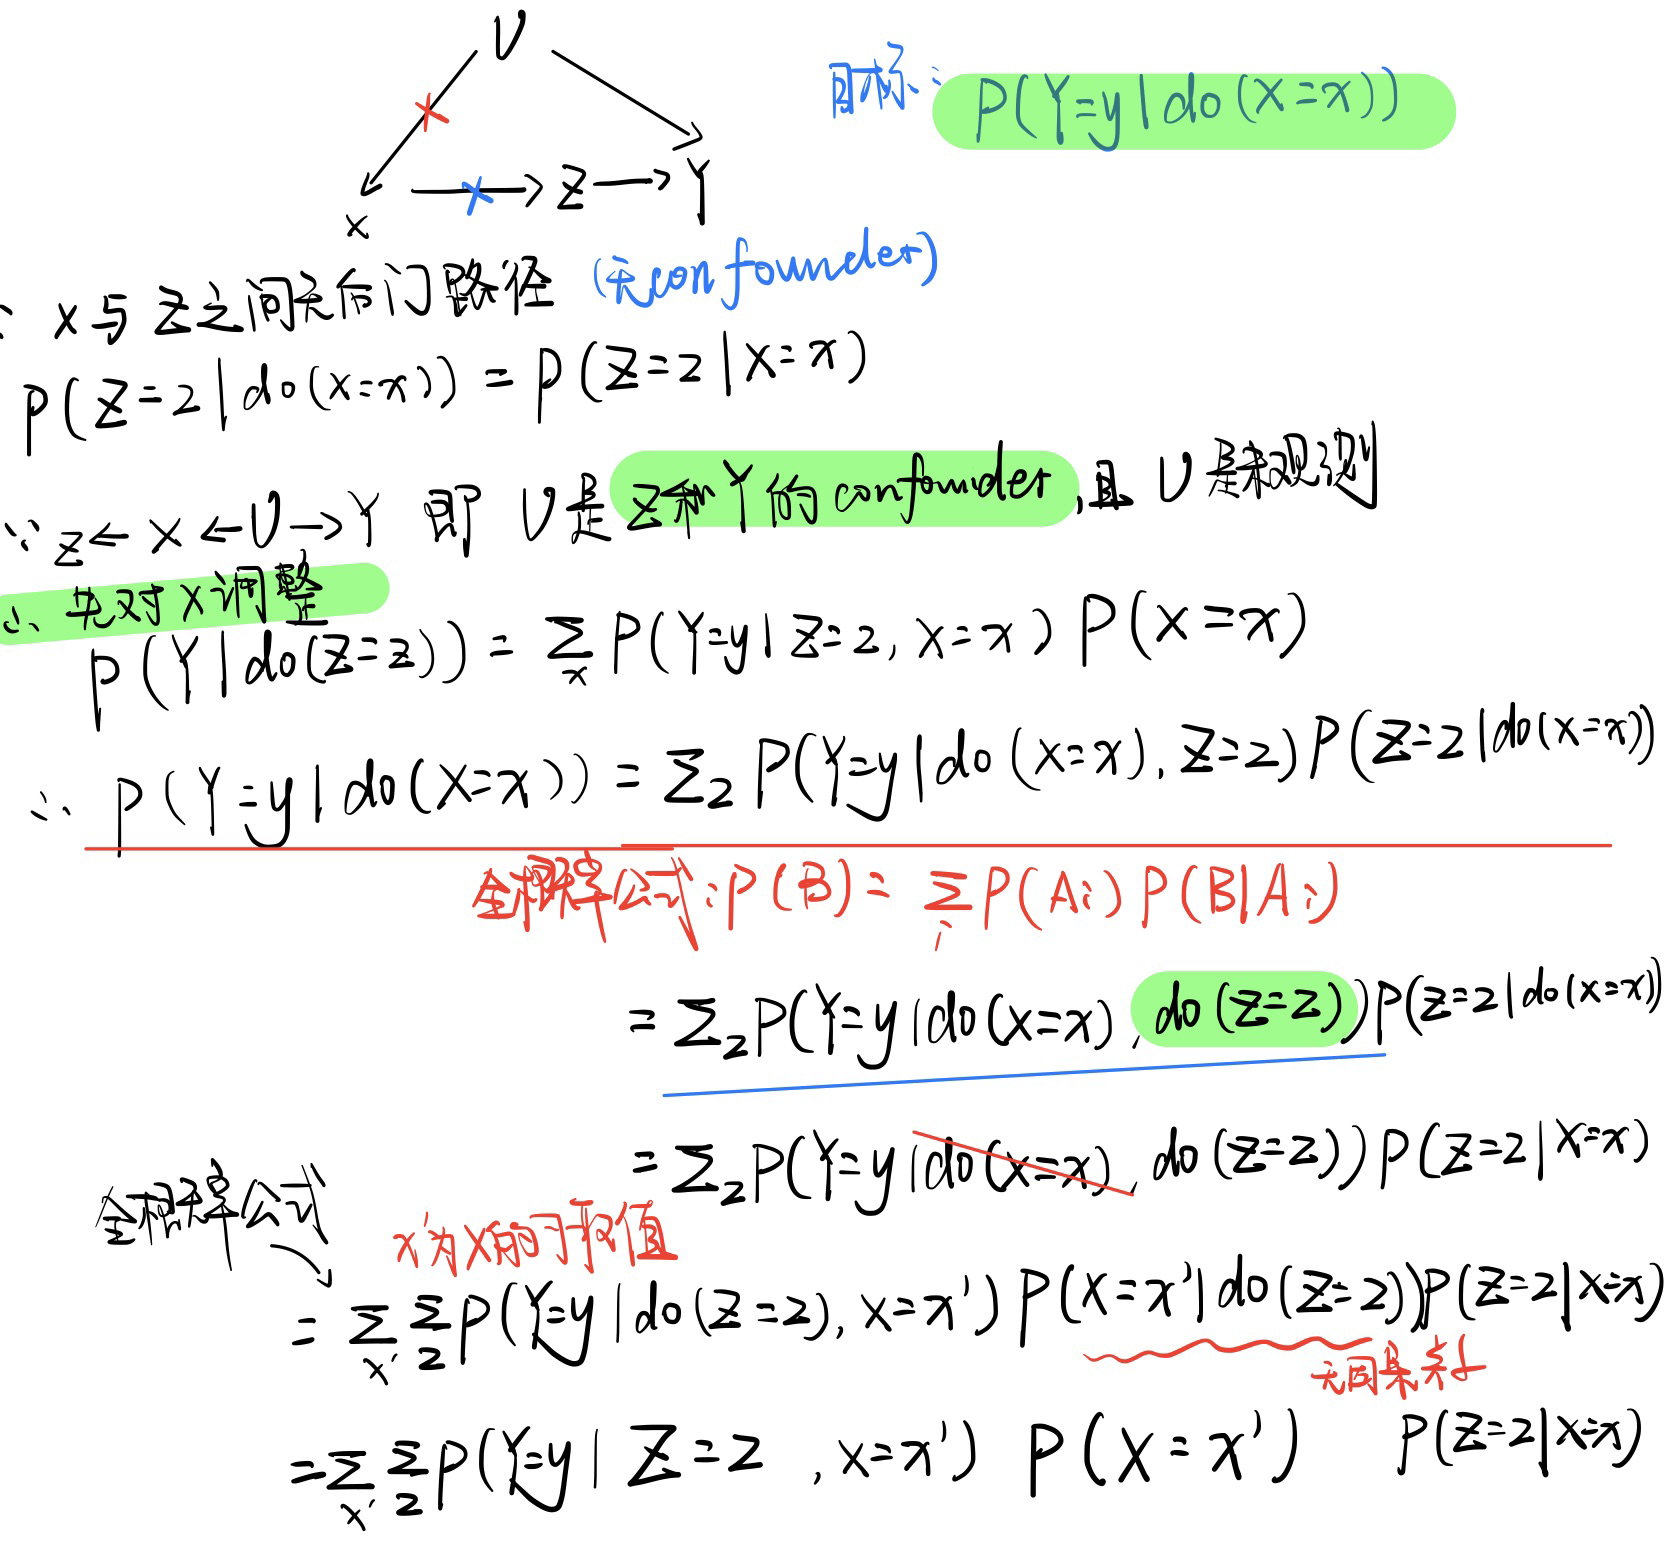 U
目标: P(Y=y|do(X=x))
X → Z → Y
∵ X与Z之间无后门路径 (无confounder)
P(Z=z|do(X=x)) = P(Z=z|X=x)
∵ Z←X←U→Y 即 U是Z和Y的confounder, 且U是未观测
∴ 先对X调整
P(Y|do(Z=z)) = Σx P(Y=y|Z=z, X=x) P(X=x)
∴ P(Y=y|do(X=x)) = Σz P(Y=y|do(X=x), Z=z) P(Z=z|do(X=x))
全概率公式: P(B) = Σi P(Ai) P(B|Ai)
= Σz P(Y=y|do(X=x), do(Z=z)) P(Z=z|do(X=x))
= Σz P(Y=y|do(X=x), do(Z=z)) P(Z=z|X=x)
全概率公式
x'为X的可取值
= Σx' Σz P(Y=y|do(Z=z), X=x') P(X=x'|do(Z=z)) P(Z=z|X=x)
无因果关系
= Σx' Σz P(Y=y|Z=z, X=x') P(X=x') P(Z=z|X=x)